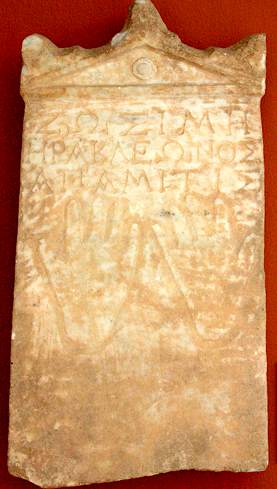 ΖΩΣΙΜΗ
ΗΡΑΚΛΕΩΝΟΣ
ΑΠΑΜΙΤΙΣ